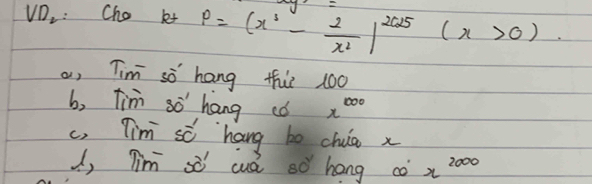 VD₂: Cho bt P = (x³ - 2/x²)^2025 (x > 0).
a, Tìm số hạng thứ 100
b, Tìm số hạng có x^1000
c, Tìm số hạng ko chứa x
d, Tìm số của số hạng có x^2000